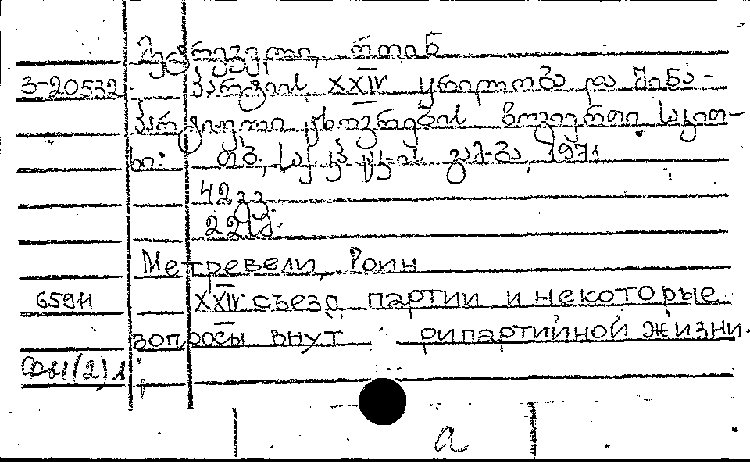 მეტრეველი, როინ
3-20552 პარტიის XXIV ყრილობა და შინა-
პარტიული ცხოვრების ზოგიერთი საკით-
ხი: თბ., საქ. კპ ცკ-ის გამ-ბა, 1971
42 გვ.
Метревели, Роин
XXIV съезд партии и некоторые
вопросы внут рипартийной жизни.
a